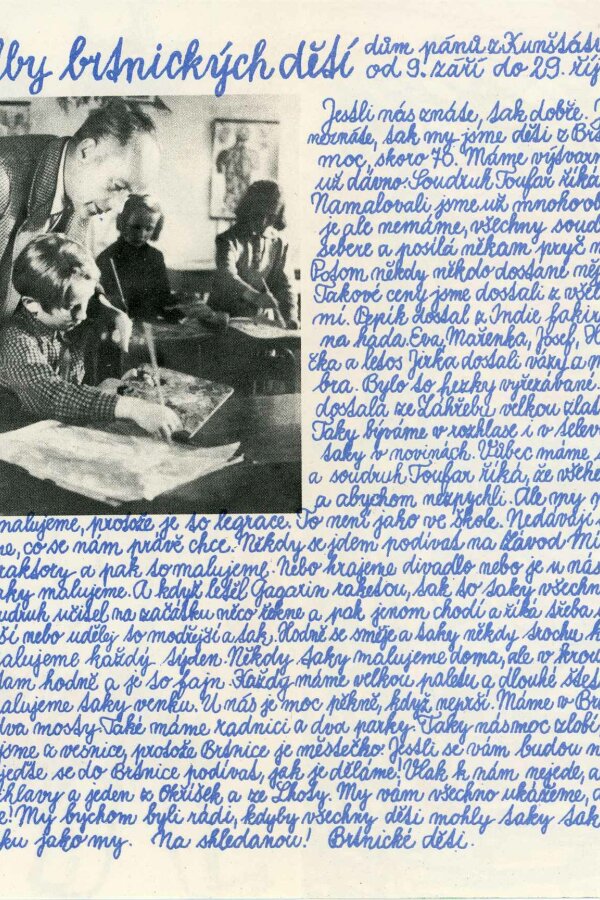 by brtnických dětí
dům pánů z Kunštátu
od 9. září do 29. říj
Jestli nás znáte, tak dobře.
neznáte, tak my jsme děti z Brt
moc, skoro 70. Máme výtvarn
už dávno. Soudruh Toufar říká
Namalovali jsme už mnoho ob
je ale nemáme, všechny soud
sebere a posílá někam pryč n
Potom někdy někdo dostane něj
Takové ceny jsme dostali z vše
mí. Pepík dostal z Indie fakír
na hada. Eva, Mařenka, Josef, H
čka a letos Jirka dostali vázy a m
bra. Bylo to hezky vyřezávané.
dostala ze Záhřebu velkou zlat
Taky býváme v rozhlase i v telev
taky v novinách. Vůbec máme
a soudruh Toufar říká, že všeh
a abychom nezpychli. Ale my n
malujeme, protože je to legrace. To není jako ve škole. Nedávají
me, co se nám právě chce. Někdy se jdem podívat na závod Mí
raktory a pak to malujeme. Nebo hrajeme divadlo nebo je u nás
aky malujeme. A když letěl Gagarin raketou, tak to taky všechn
oudruh učitel na začátku něco řekne a pak jenom chodí a říká třeba
ší nebo udělej to modřejší a tak. Hodně se směje a taky někdy trochu k
alujeme každý týden. Někdy taky malujeme doma, ale v krou
tam hodně a je to fajn. Každý máme velkou paletu a dlouhé štět
alujeme taky venku. U nás je moc pěkně, když neprší. Máme v Br
dva mosty. Také máme radnici a dva parky. Taky nás moc zlobí
jsme z vesnice, protože Brtnice je městečko. Jestli se vám budou n
ijeďte se do Brtnice podívat, jak je děláme! Vlak k nám nejede, a
ihlavy a jeden z Okříšek a ze Lhoty. My vám všechno ukážeme,
e! My bychom byli rádi, kdyby všechny děti mohly taky tak
ku jako my. Na shledanou! Brtnické děti.